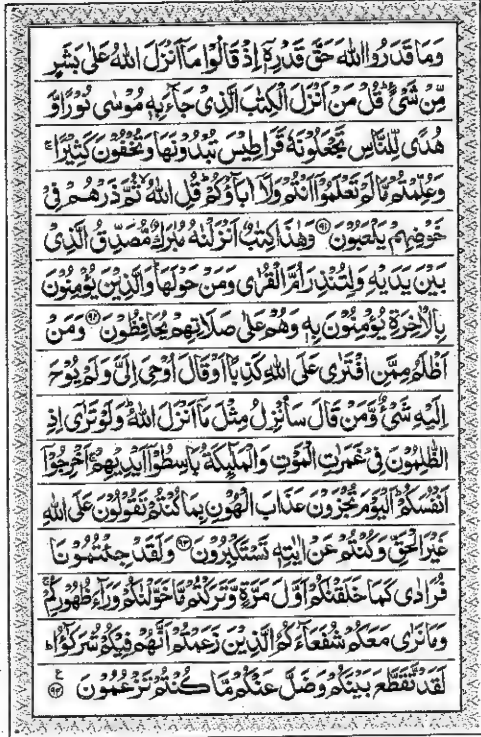 وَمَا قَدَرُوا اللّٰهَ حَقَّ قَدْرِهٖٓ اِذْ قَالُوْا مَآ اَنْزَلَ اللّٰهُ عَلٰی بَشَرٍ
مِّنْ شَیْءٍ ؕ قُلْ مَنْ اَنْزَلَ الْكِتٰبَ الَّذِیْ جَآءَ بِهٖ مُوْسٰی نُوْرًا وَّ
هُدًی لِّلنَّاسِ تَجْعَلُوْنَهٗ قَرَاطِیْسَ تُبْدُوْنَهَا وَتُخْفُوْنَ كَثِیْرًا ۚ
وَعُلِّمْتُمْ مَّا لَمْ تَعْلَمُوْٓا اَنْتُمْ وَلَآ اٰبَآؤُكُمْ ؕ قُلِ اللّٰهُ ۙ ثُمَّ ذَرْهُمْ فِیْ
خَوْضِهِمْ یَلْعَبُوْنَ ﴿۹۱﴾ وَهٰذَا كِتٰبٌ اَنْزَلْنٰهُ مُبٰرَكٌ مُّصَدِّقُ الَّذِیْ
بَیْنَ یَدَیْهِ وَلِتُنْذِرَ اُمَّ الْقُرٰی وَمَنْ حَوْلَهَا ؕ وَالَّذِیْنَ یُؤْمِنُوْنَ
بِالْاٰخِرَةِ یُؤْمِنُوْنَ بِهٖ وَهُمْ عَلٰی صَلَاتِهِمْ یُحَافِظُوْنَ ﴿۹۲﴾ وَمَنْ
اَظْلَمُ مِمَّنِ افْتَرٰی عَلَی اللّٰهِ كَذِبًا اَوْ قَالَ اُوْحِیَ اِلَیَّ وَلَمْ یُوْحَ
اِلَیْهِ شَیْءٌ وَّمَنْ قَالَ سَاُنْزِلُ مِثْلَ مَآ اَنْزَلَ اللّٰهُ ؕ وَلَوْ تَرٰٓی اِذِ
الظّٰلِمُوْنَ فِیْ غَمَرٰتِ الْمَوْتِ وَالْمَلٰٓئِكَةُ بَاسِطُوْٓا اَیْدِیْهِمْ ۚ اَخْرِجُوْٓا
اَنْفُسَكُمْ ؕ اَلْیَوْمَ تُجْزَوْنَ عَذَابَ الْهُوْنِ بِمَا كُنْتُمْ تَقُوْلُوْنَ عَلَی اللّٰهِ
غَیْرَ الْحَقِّ وَكُنْتُمْ عَنْ اٰیٰتِهٖ تَسْتَكْبِرُوْنَ ﴿۹۳﴾ وَلَقَدْ جِئْتُمُوْنَا
فُرَادٰی كَمَا خَلَقْنٰكُمْ اَوَّلَ مَرَّةٍ وَّتَرَكْتُمْ مَّا خَوَّلْنٰكُمْ وَرَآءَ ظُهُوْرِكُمْ ۚ
وَمَا نَرٰی مَعَكُمْ شُفَعَآءَكُمُ الَّذِیْنَ زَعَمْتُمْ اَنَّهُمْ فِیْكُمْ شُرَكٰٓؤُا ؕ
لَقَدْ تَّقَطَّعَ بَیْنَكُمْ وَضَلَّ عَنْكُمْ مَّا كُنْتُمْ تَزْعُمُوْنَ ﴿۹۴﴾ ع